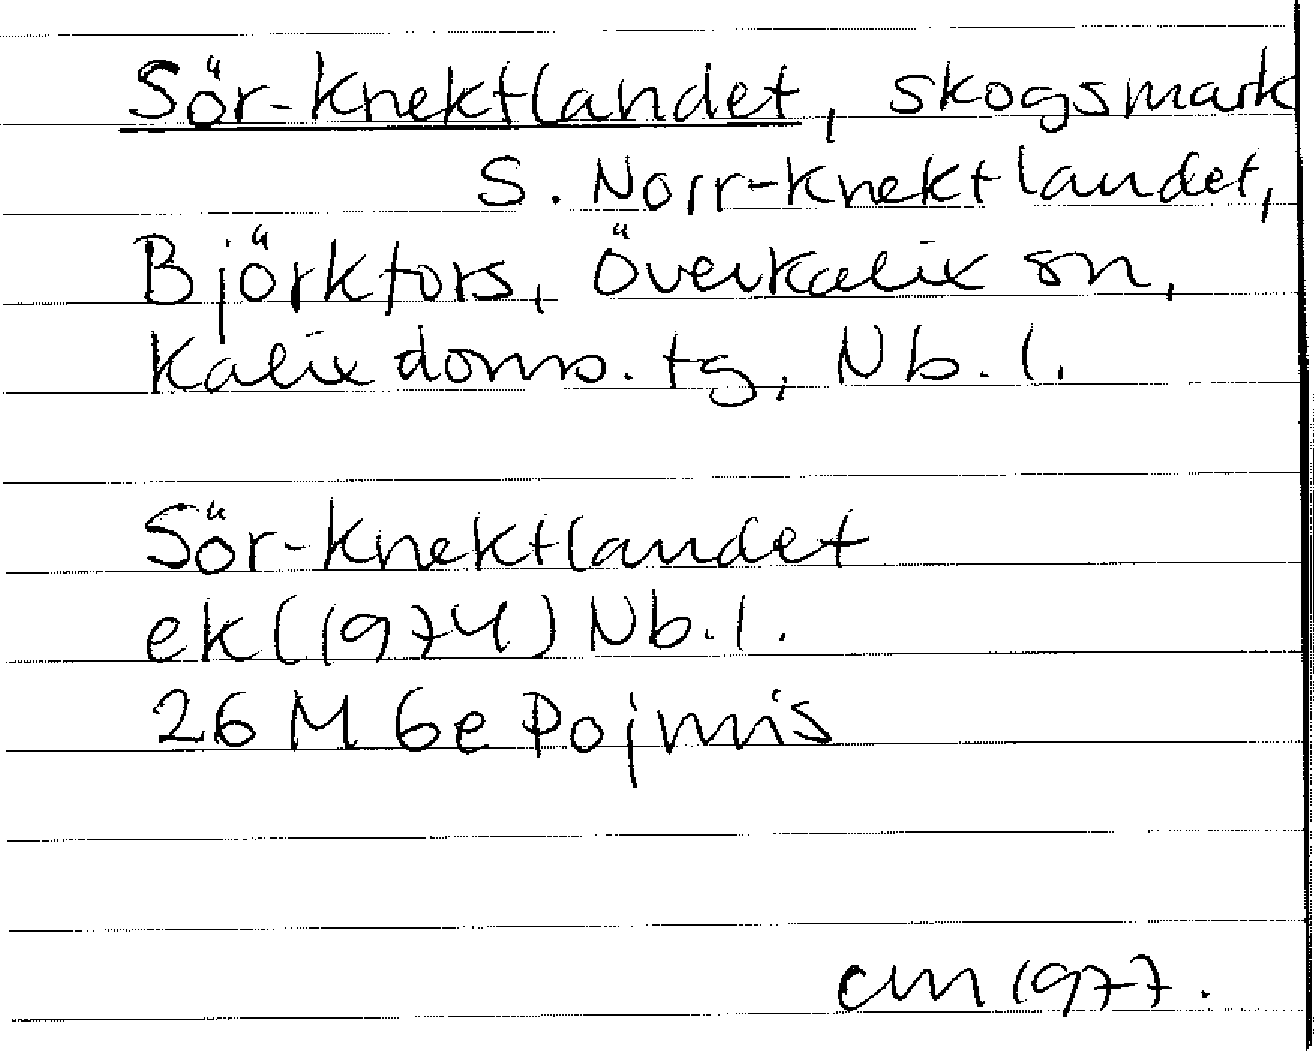 Sör-Knektlandet, skogsmark
S. Norr-Knektlandet,
Björkfors, Överkalix sn,
Kalix doms. tg, Nb. l.
Sör-Knektlandet
ek (1974) Nb. l.
26 M 6e Pojmis
cm 1977.